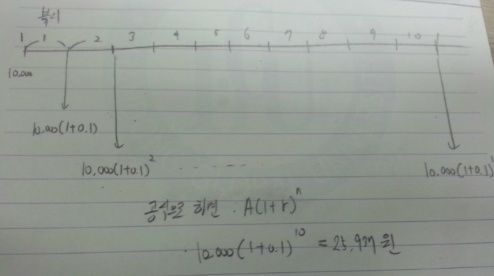 1 1 2 3 4 5 6 7 8 9 10
10,000
10.000(1+0.1)
10,000(1+0.1)²
10,000(1+0.1)
공식으로 하면 . A(1+r)ⁿ
10.000(1+0.1)¹⁰ = 25,937원